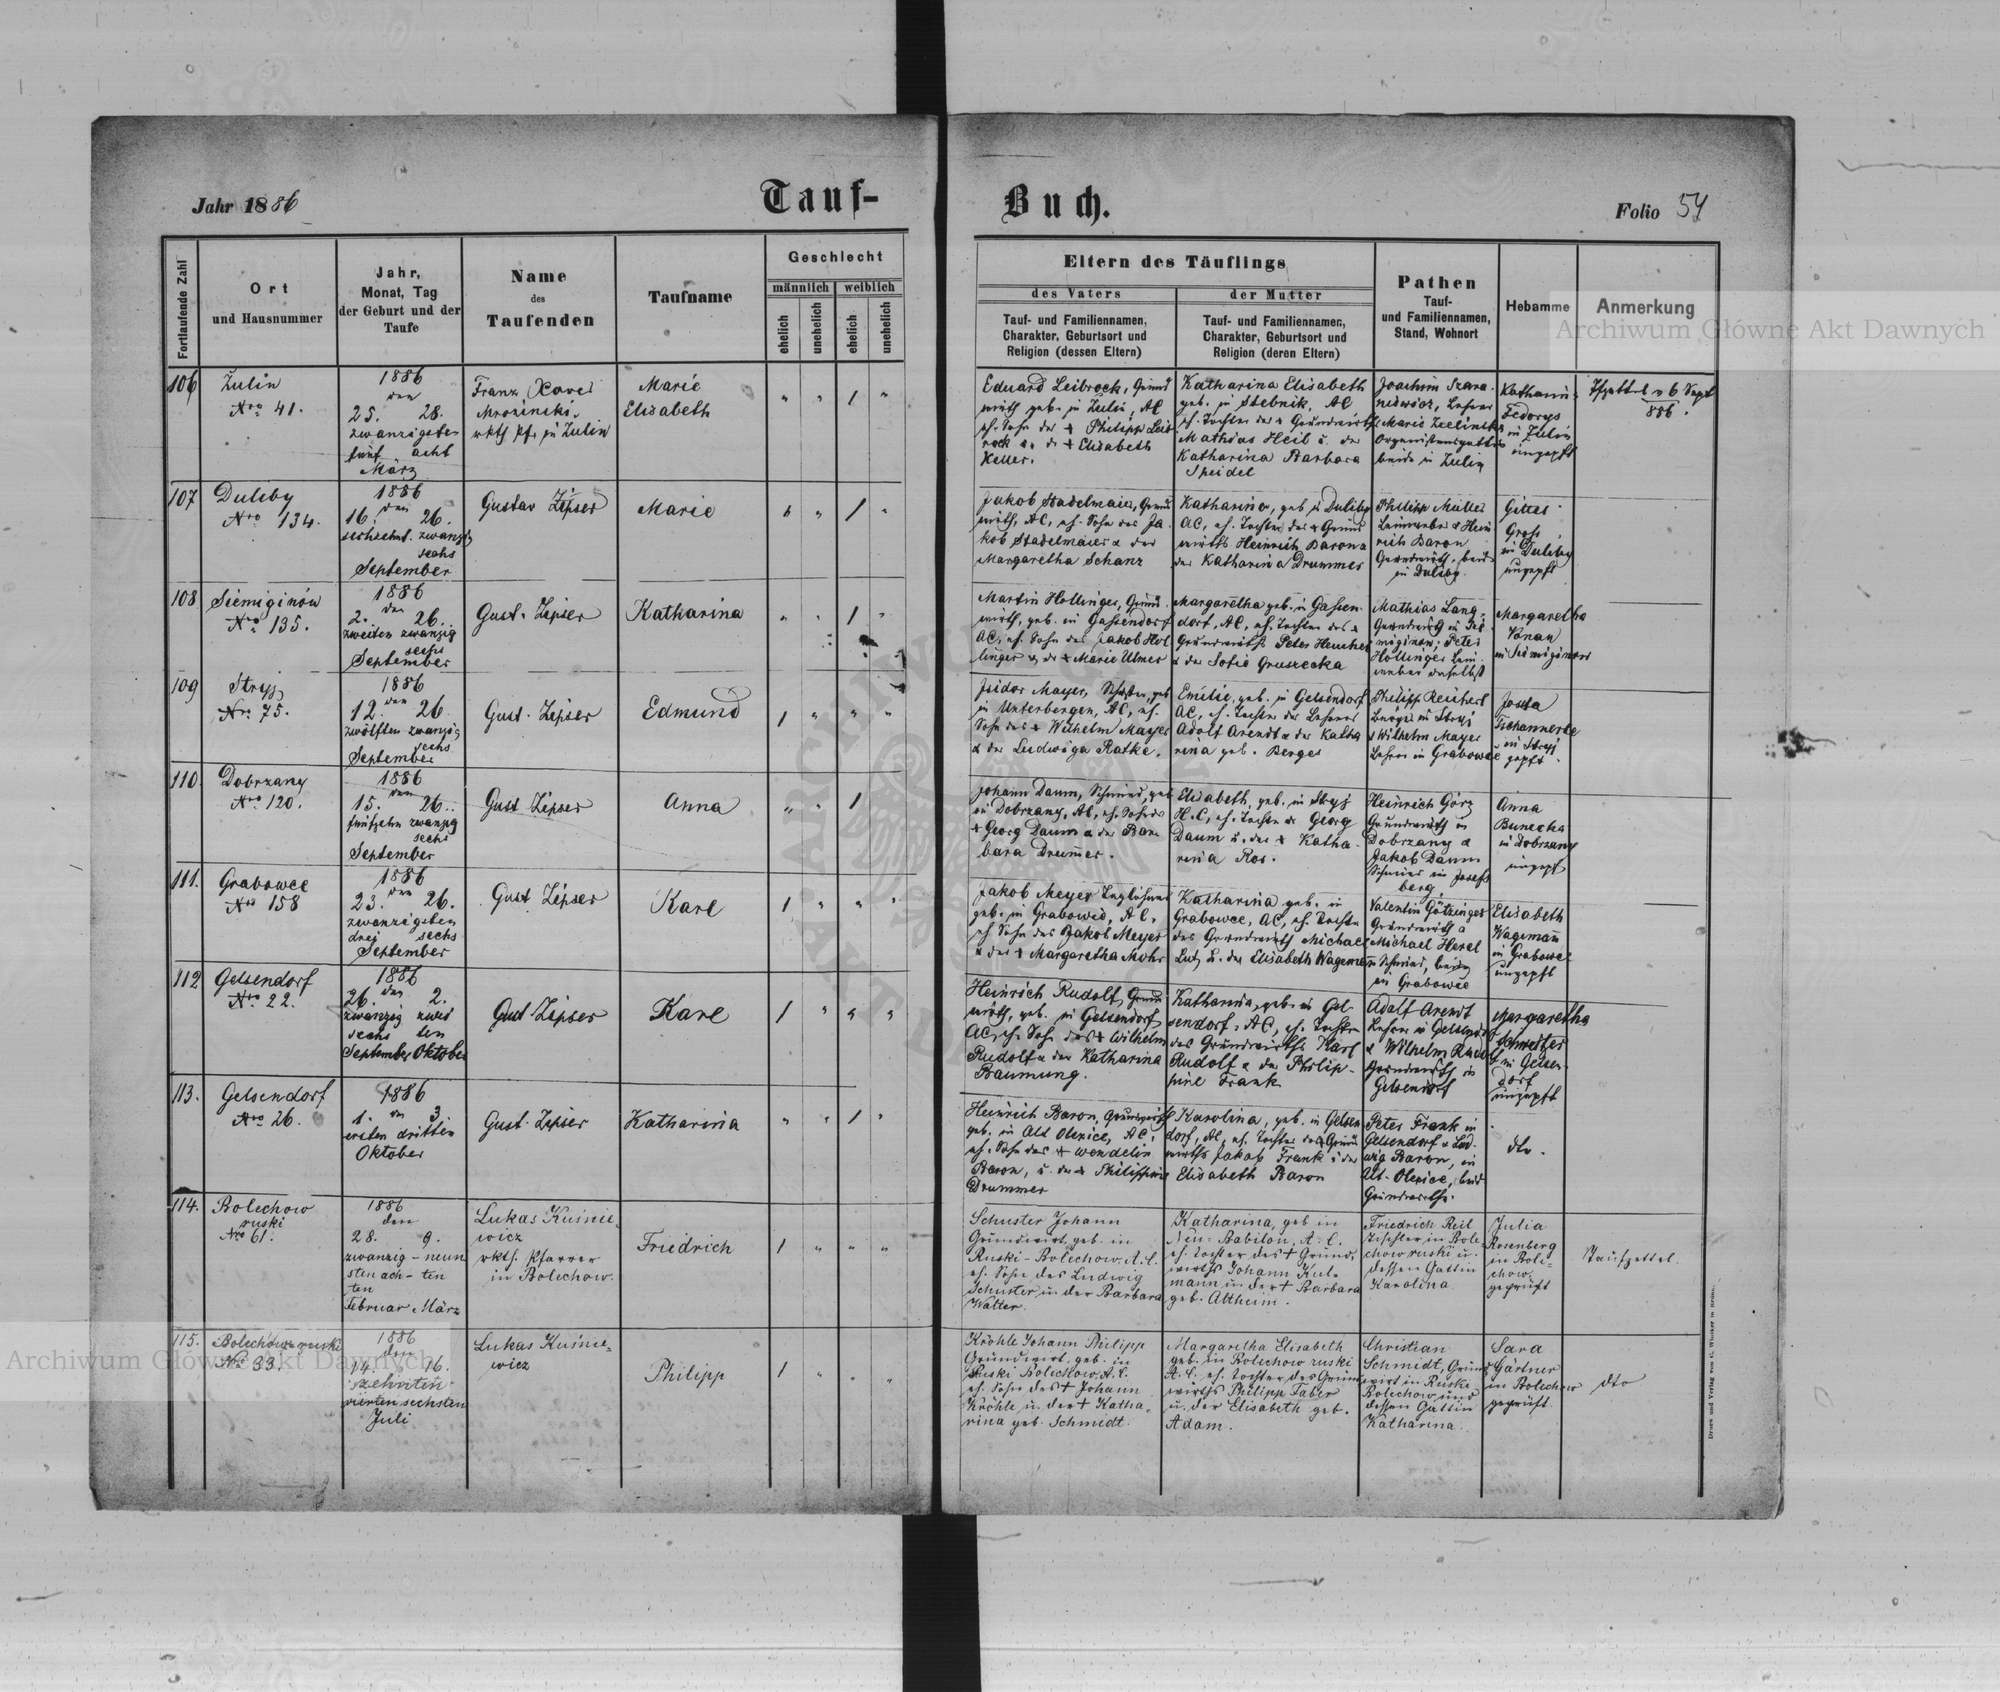 Jahr 1886
Tauf-
Buch.
Folio 54
Fortlaufende Zahl
Ort
und Hausnummer
Jahr,
Monat, Tag
der Geburt und der
Taufe
Name
des
Taufenden
Taufname
Geschlecht
männlich weiblich
ehelich
unehelich
ehelich
unehelich
Eltern des Täuflings
des Vaters
Tauf- und Familiennamen,
Charakter, Geburtsort und
Religion (dessen Eltern)
der Mutter
Tauf- und Familiennamen,
Charakter, Geburtsort und
Religion (deren Eltern)
Pathen
Tauf-
und Familiennamen,
Stand, Wohnort
Hebamme
Anmerkung
Archiwum Główne Akt Dawnych
106
Zulin
Nro 41.
1886
den
25. 28.
zwanzigsten
fünf acht
März
Franz Xaver
Mrozinski
rkth Pf. in Zulin
Marie
Elisabeth
1
Eduard Leibrock, Grund
wirth geb. in Zulin, AC
eh. Sohn der + Philipp Leib
rock u. d. + Elisabeth
Keller.
Katharina Elisabeth
geb. in Stebnik, AC
eh. Tochter des + Grundwirths
Mathias Heil u. der
Katharina Barbara
Speidel
Joachim Szara
niewicz, Lehrer
Marie Zielinska
Organistensgattin
beide in Zulin
Katharina
Fedorys
in Zulin
ungepft
Tfzettel v 6 Sept
886.
107
Duliby
Nro 134.
1886
den
16. 26.
sechzehnt. zwanzig
sechs
September
Gustav Zipser
Marie
1
Jakob Stadelmaier, Grund
wirth, AC, eh. Sohn des Ja
kob Stadelmaier u der
Margaretha Schanz
Katharina, geb in Duliby
AC, eh. Tochter des + Grund
wirths Heinrich Baron u
der Katharina Drummer
Philipp Müller
Leinweber u Hein
rich Baron
Grundwirth, beide
in Duliby.
Gittel
Gross
in Duliby
ungepft
108.
Siemiginów
Nro 135.
1886
den
2. 26.
zweiten zwanzig
sechs
September
Gust. Zipser
Katharina
1
Martin Hollinger, Grund
wirth, geb. in Gassendorf
AC, eh. Sohn des Jakob Hol
linger u. der + Marie Ulmer
Margaretha geb. in Gassen
dorf, AC, eh. Tochter des +
Grundwirths Peter Heucher
u der Sofie Gruszecka
Mathias Lang,
Grundwirth in Sie
miginow; Peter
Hollinger Lein
weber daselbst
Margaretha
Vonau
in Siemiginow
109
Stryj
Nro 75.
1886
den
12. 26.
zwölften zwanzig
sechs
September
Gust. Zipser
Edmund
1
Isidor Mayer, geb
in Unterbergen, AC, eh.
Sohn des + Wilhelm Mayer
u der Ludwiga Ratke.
Emilie, geb. in Gelsendorf
AC, eh. Tochter des Lehrers
Adolf Arendt u der Katha
rina geb. Berger
Philipp Reichert
Burger in Stryj
u Wilhelm Mayer
Lehrer in Grabowce
Josefa
in Stryj
gepft.
110.
Dobrzany
Nro 120.
1886
den
15. 26.
fünfzehn zwanzig
sechs
September
Gust Zipser
Anna
1
Johann Daum, Schmied, geb
in Dobrzany, AC, eh. Sohn des
+ Georg Daum u der Bar
bara Drumer.
Elisabeth, geb. in Stryj
H.C, eh. Tochter des Georg
Daum u. der + Katha
rina Ros.
Heinrich Görz
Grundwirth in
Dobrzany u
Jakob Daum
Schmied in Josefs
berg
Anna
Bunecka
in Dobrzany
ungepft
111.
Grabowce
Nro 158
1886
den
23. 26.
zwanzigsten
drei sechs
September
Gust Zipser
Karl
1
Jakob Meyer Taglöhner
geb. in Grabowce, A C,
eh Sohn des Jakob Meyer
u der + Margaretha Mohr
Katharina geb. in
Grabowce, AC, eh. Tochter
des Grundwirth Michael
Lutz u. der Elisabeth Wagemann
Valentin Götzinger
Grundwirth u
Michael Herel
Schmied, beide
in Grabowce
Elisabeth
Wagemann
in Grabowce
ungepft
112
Gelsendorf
Nro 22.
1886
den
26. 2.
zwanzig zwei
sechs ten
September Oktober
Gust Zipser
Karl
1
Heinrich Rudolf, Grund
wirth, geb. in Gelsendorf
AC, eh. Sohn des + Wilhelm
Rudolf u der Katharina
Baumung.
Katharina, geb. in Gel
sendorf, AC, eh. Tochter
des Grundwirths Karl
Rudolf u der Philip-
pine Frank
Adolf Arendt
Lehrer in Gelsendorf
u Wilhelm Rudolf
Grundwirth in
Gelsendorf
Margaretha
Schweitzer
in Gelsen
dorf
ungepft
113.
Gelsendorf
Nro 26.
1886
1. den 3.
ersten dritten
Oktober
Gust. Zipser
Katharina
1
Heinrich Baron, Grundwirth
geb. in Alt Olexice, AC,
eh. Sohn des + Wendelin
Baron, u. der + Philippine
Drummer
Karolina, geb. in Gelsen
dorf, AC, eh. Tochter des + Grund
wirths Jakob Frank u der
Elisabeth Baron
Peter Frank in
Gelsendorf u Lud
wig Baron, in
Alt-Olexice, beide
Grundwirthe.
dto.
114.
Bolechow
ruski
Nro 61.
1886
den
28. 9.
zwanzig - neun
sten ach - ten
ten
Februar März
Lukas Kuśnie-
wicz
rkth. Pfarrer
in Bolechow.
Friedrich
1
Schuster Johann
Grundwirt, geb. in
Ruski-Bolechow, A.C.
eh. Sohn des Ludwig
Schuster u. der Barbara
Walter.
Katharina, geb in
Neu-Babilon, A.C.
eh. Tochter des + Grund-
wirths Johann Kul-
mann u. der + Barbara
geb. Altheim.
Friedrich Reil
Tischler in Bole-
chow ruski u.
dessen Gattin
Karolina
Julia
Rosenberg
in Bole-
chow
geprüft
Taufzettel.
115.
Bolechów-ruski
Nro 33.
1886
den
14. 16.
zehnten
vierten sechsten
Juli
Lukas Kuśnie-
wicz
Philipp
1
Kröhle Johann Philipp
Grundwirt, geb. in
Ruski Bolechow, A.C.
eh. Sohn des + Johann
Kröhle u. der + Katha-
rina geb. Schmidt.
Margaretha Elisabeth
geb. in Bolechow ruski
A.C. eh. Tochter des Grund
wirths Philipp Faber
u. der Elisabeth geb.
Adam.
Christian
Schmidt, Grund
wirt in Ruski
Bolechow und
dessen Gattin
Katharina.
Sara
Gärtner
in Bolechow
geprüft.
dto
Archiwum Główne Akt Dawnych